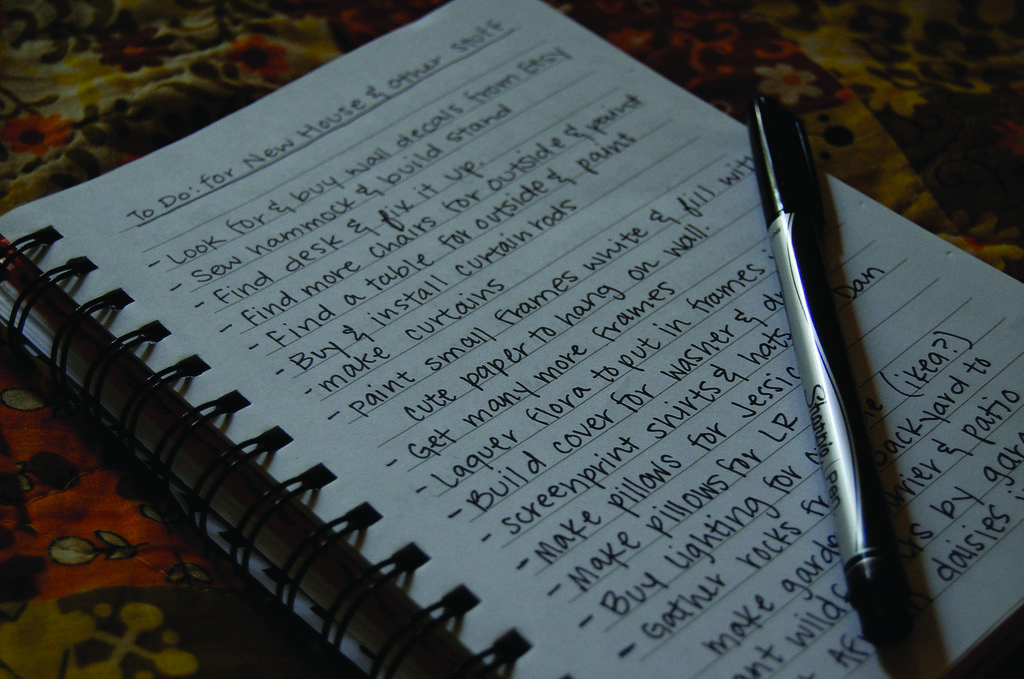 To Do: for New House & other stuff
- Look for & buy wall decals from Etsy
- Sew hammock & build stand
- Find desk & fix it up.
- Find more chairs for outside & paint
- Find a table for outside & paint
- Buy & install curtain rods
- make curtains
- paint small frames white & fill with
cute paper to hang on wall.
- Get many more frames
- Laquer flora to put in frames
- Build cover for washer &
- screenprint shirts & hats Dan
- Make pillows for
- Make pillows for LR
- Buy lighting for (ikea?)
- Gather rocks backyard to
make & patio
by
daisies